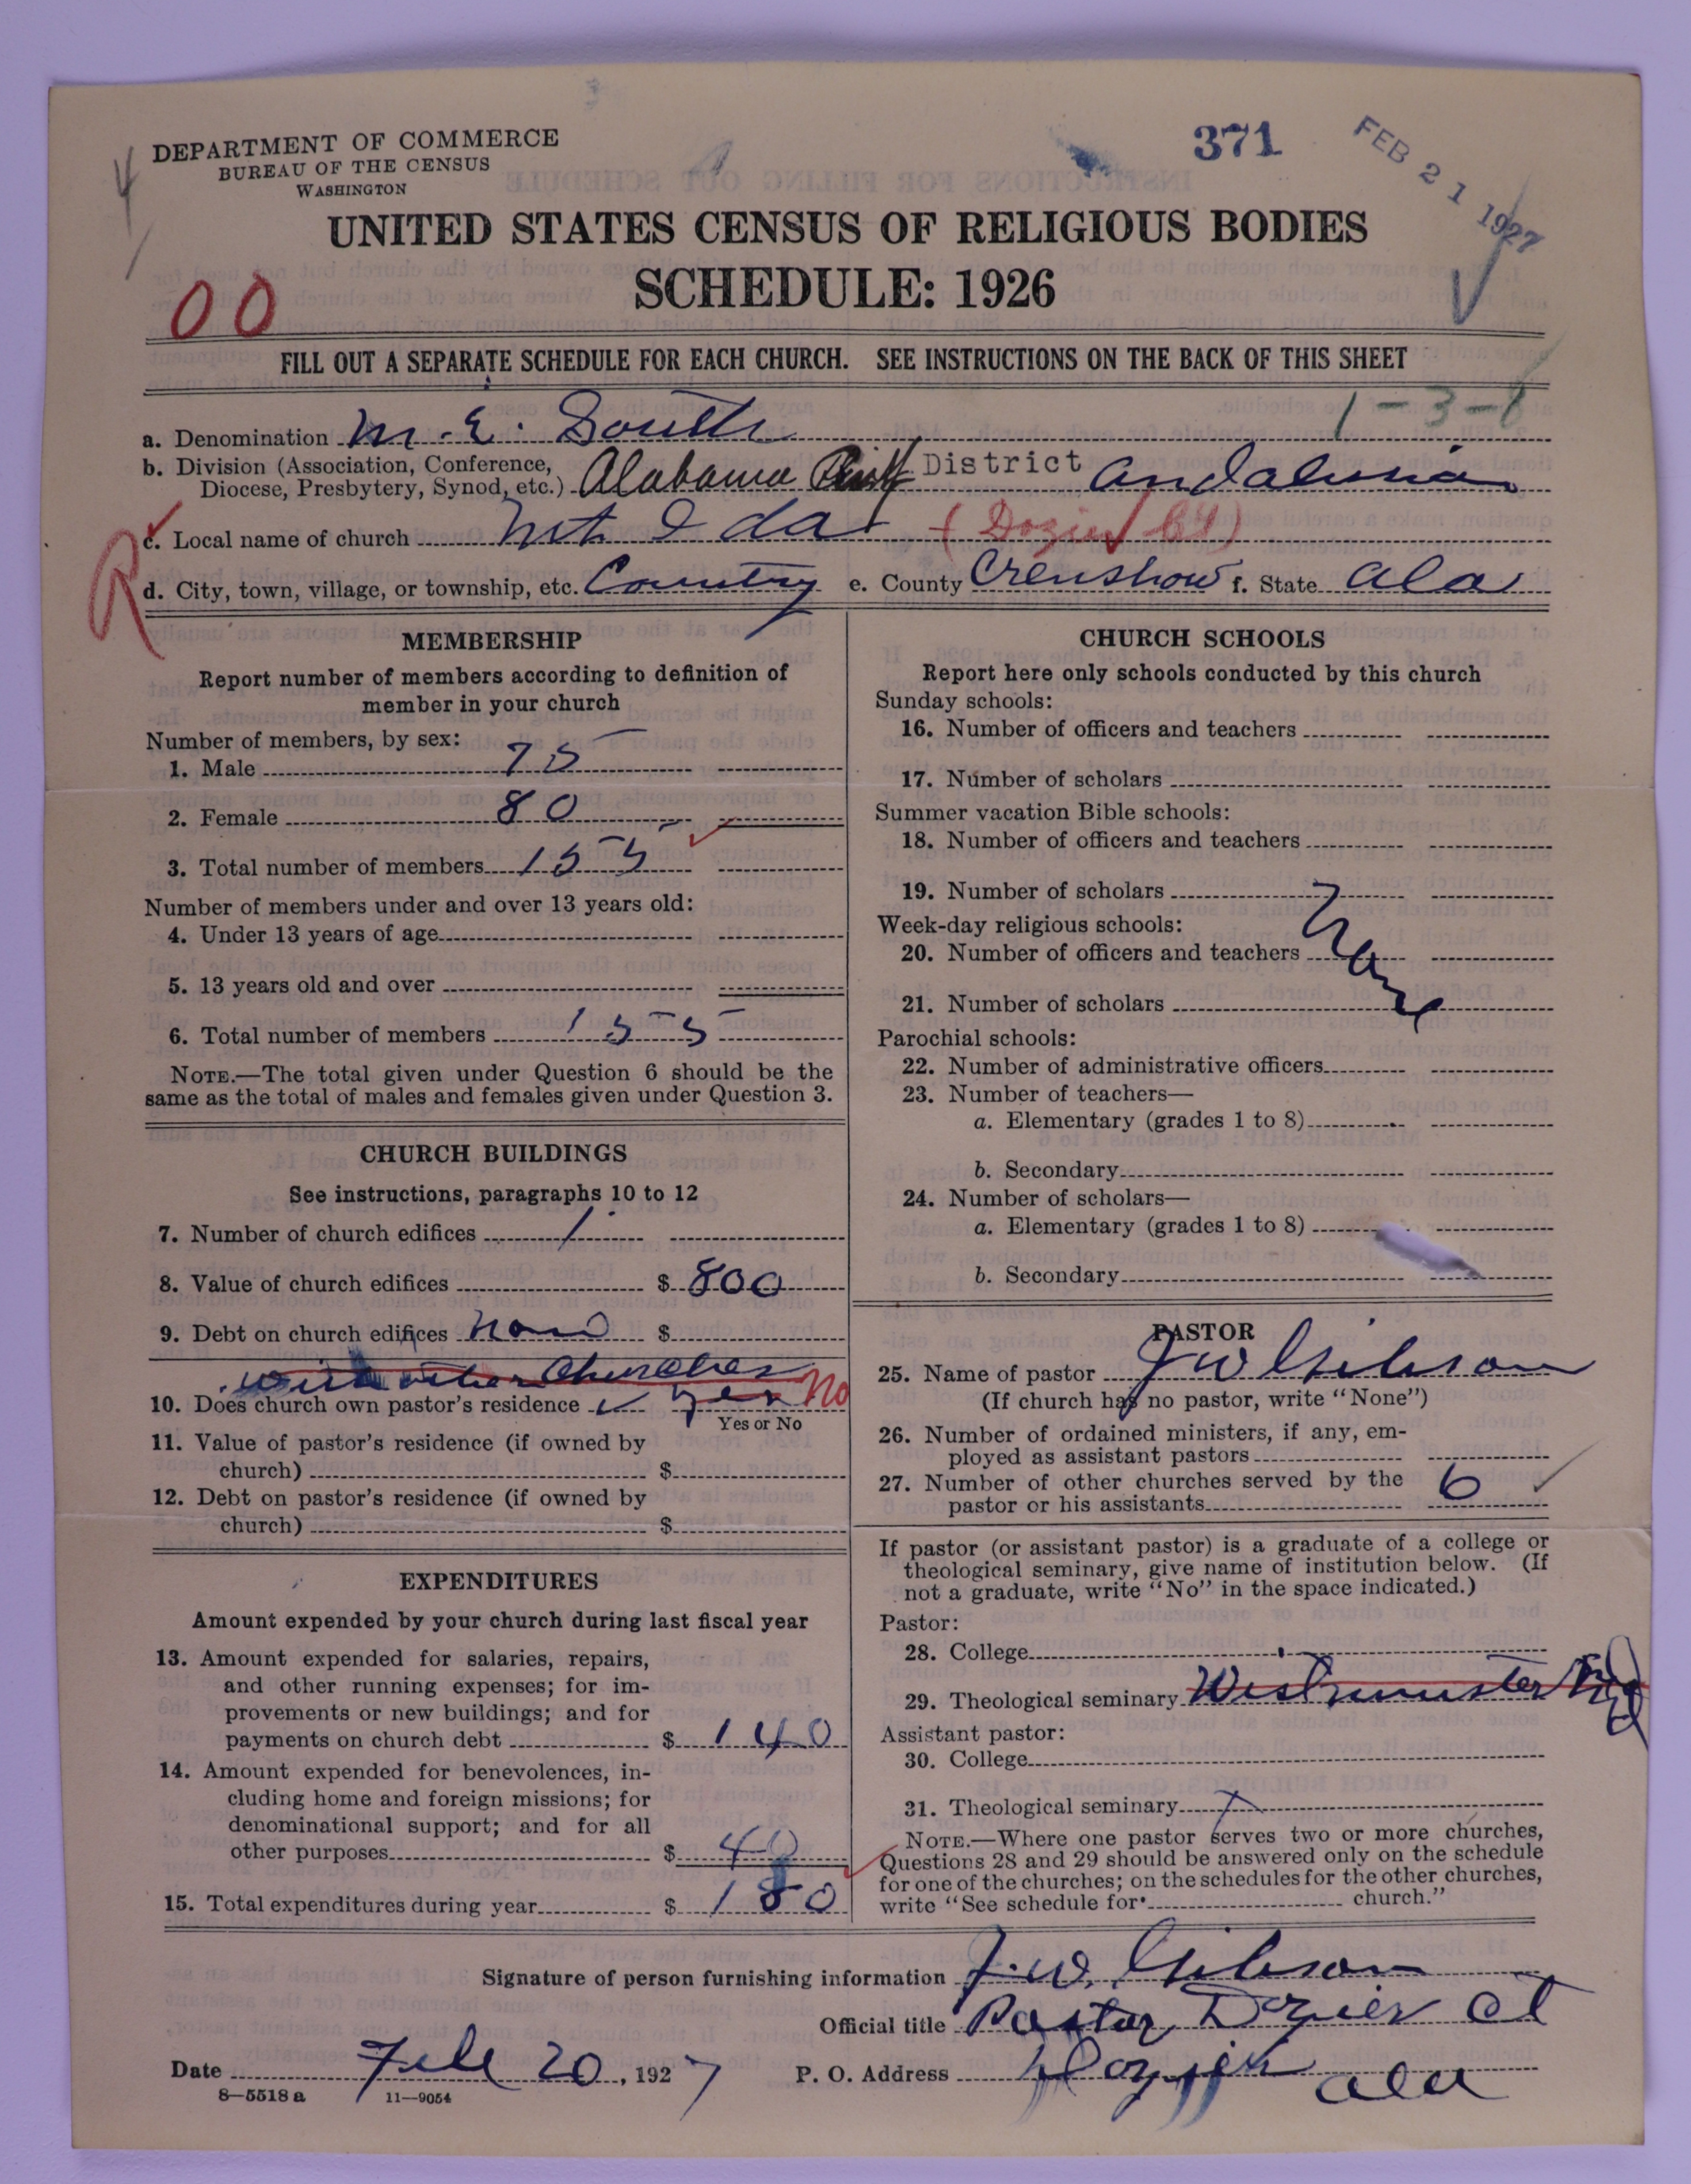 371
FEB 21 1927
DEPARTMENT OF COMMERCE
BUREAU OF THE CENSUS
WASHINGTON
UNITED STATES CENSUS OF RELIGIOUS BODIES
SCHEDULE: 1926
00
FILL OUT A SEPARATE SCHEDULE FOR EACH CHURCH. SEE INSTRUCTIONS ON THE BACK OF THIS SHEET
1-3-8
a. Denomination M. E. South
b. Division (Association, Conference, Diocese, Presbytery, Synod, etc.) Alabama District Andalusia
c. Local name of church Mt Ida (Dozier Ct)
R
d. City, town, village, or township, etc. Country e. County Crenshow f. State Ala
MEMBERSHIP
Report number of members according to definition of
member in your church
Number of members, by sex:
1. Male 75
2. Female 80
3. Total number of members 155
Number of members under and over 13 years old:
4. Under 13 years of age
5. 13 years old and over
6. Total number of members 155
NOTE.—The total given under Question 6 should be the
same as the total of males and females given under Question 3.
CHURCH BUILDINGS
See instructions, paragraphs 10 to 12
7. Number of church edifices 1
8. Value of church edifices $ 800
9. Debt on church edifices None $
with other Churches
10. Does church own pastor's residence yes No
Yes or No
11. Value of pastor's residence (if owned by
church) $
12. Debt on pastor's residence (if owned by
church) $
EXPENDITURES
Amount expended by your church during last fiscal year
13. Amount expended for salaries, repairs,
and other running expenses; for im-
provements or new buildings; and for
payments on church debt $ 140
14. Amount expended for benevolences, in-
cluding home and foreign missions; for
denominational support; and for all
other purposes $ 40
15. Total expenditures during year $ 180
CHURCH SCHOOLS
Report here only schools conducted by this church
Sunday schools:
16. Number of officers and teachers
17. Number of scholars
Summer vacation Bible schools:
18. Number of officers and teachers
19. Number of scholars
None
Week-day religious schools:
20. Number of officers and teachers
21. Number of scholars
Parochial schools:
22. Number of administrative officers
23. Number of teachers—
a. Elementary (grades 1 to 8)
b. Secondary
24. Number of scholars—
a. Elementary (grades 1 to 8)
b. Secondary
PASTOR
25. Name of pastor J W Gibson
(If church has no pastor, write "None")
26. Number of ordained ministers, if any, em-
ployed as assistant pastors
27. Number of other churches served by the
pastor or his assistants 6
If pastor (or assistant pastor) is a graduate of a college or
theological seminary, give name of institution below. (If
not a graduate, write "No" in the space indicated.)
Pastor:
28. College
29. Theological seminary Westminster
Assistant pastor:
30. College
31. Theological seminary
NOTE.—Where one pastor serves two or more churches,
Questions 28 and 29 should be answered only on the schedule
for one of the churches; on the schedules for the other churches,
write "See schedule for church."
Signature of person furnishing information J. W. Gibson
Official title Pastor Dozier Ct
Date Feb 20, 1927 P. O. Address Dozier Ala
8—5518 a 11—9054